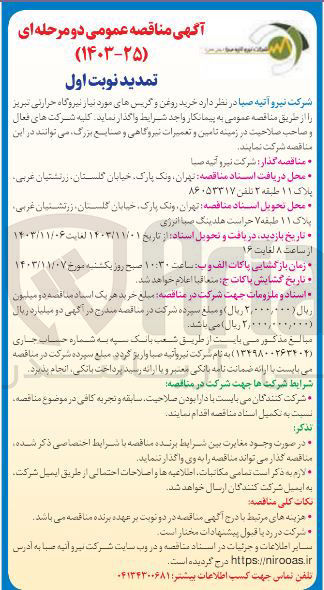 آگهی مناقصه عمومی دو مرحله‌ای
(۱۴۰۳-۲۵)
تمدید نوبت اول
شرکت نیرو آتیه صبا
شرکت نیرو آتیه صبا در نظر دارد خرید روغن و گریس های مورد نیاز نیروگاه حرارتی تبریز
را از طریق مناقصه عمومی به پیمانکار واجد شرایط واگذار نماید. کلیه شرکت های فعال
و صاحب صلاحیت در زمینه تامین و تعمیرات نیروگاهی و صنایع بزرگ، می توانند در این
مناقصه شرکت نمایند.
• مناقصه گذار: شرکت نیرو آتیه صبا
• محل دریافت اسناد مناقصه: تهران، ونک پارک، خیابان گلستان، زرتشتیان غربی،
پلاک ۱۱ طبقه ۲ تلفن ۸۶۰۵۳۳۱۷
• محل تحویل اسناد مناقصه: تهران، ونک پارک، خیابان گلستان، زرتشتیان غربی،
پلاک ۱۱ طبقه ۷ حراست هلدینگ صبا انرژی
• تاریخ بازدید، دریافت و تحویل اسناد: از تاریخ ۱۴۰۳/۱۱/۰۱ لغایت ۱۴۰۳/۱۱/۰۶
از ساعت ۸ لغایت ۱۶
• زمان بازگشایی پاکات الف و ب: ساعت ۱۰:۳۰ صبح روز یکشنبه مورخ ۱۴۰۳/۱۱/۰۷
• تاریخ گشایش پاکات ج: متعاقبا اعلام خواهد شد.
• اسناد و ملزومات جهت شرکت در مناقصه: مبلغ خرید هر یک اسناد مناقصه دو میلیون
ریال (۲,۰۰۰,۰۰۰ ریال) و مبلغ سپرده شرکت در مناقصه مندرج در آگهی دو میلیارد ریال
(۲,۰۰۰,۰۰۰,۰۰۰ ریال) می باشد.
مبالغ مذکور می بایست از طریق شعب بانک سپه به شماره حساب جاری
(۱۳۴۹۸۰۰۲۶۳۴۰۴) به نام شرکت نیرو آتیه صبا واریز گردد. مبلغ سپرده شرکت در مناقصه
می بایست با ارائه ضمانت نامه بانکی معتبر و یا ارائه رسید پرداخت بانکی، انجام پذیرد.
شرایط شرکت ها جهت شرکت در مناقصه:
• شرکت کنندگان می بایست با دارا بودن صلاحیت، سابقه و تجربه کافی در موضوع مناقصه،
نسبت به تکمیل اسناد مناقصه اقدام نمایند.
تذکر:
• در صورت وجود مغایرت بین شرایط برنده مناقصه با شرایط اختصاصی ذکر شده،
مناقصه گذار می تواند مناقصه را به وی واگذار ننماید.
• لازم به ذکر است تمامی مکاتبات، اطلاعیه ها و اصلاحات احتمالی از طریق ایمیل شرکت،
به ایمیل شرکت کنندگان ارسال خواهد شد.
نکات کلی مناقصه:
• هزینه های مرتبط با درج آگهی مناقصه در دو نوبت بر عهده برنده مناقصه می باشد.
• شرکت در رد یا قبول پیشنهادات مختار است.
سایر اطلاعات و جزئیات در اسناد مناقصه و در وب سایت شرکت نیرو آتیه صبا به آدرس
https://nirooas.ir درج گردیده است.
تلفن تماس جهت کسب اطلاعات بیشتر: ۰۴۱۳۴۳۰۰۶۸۱